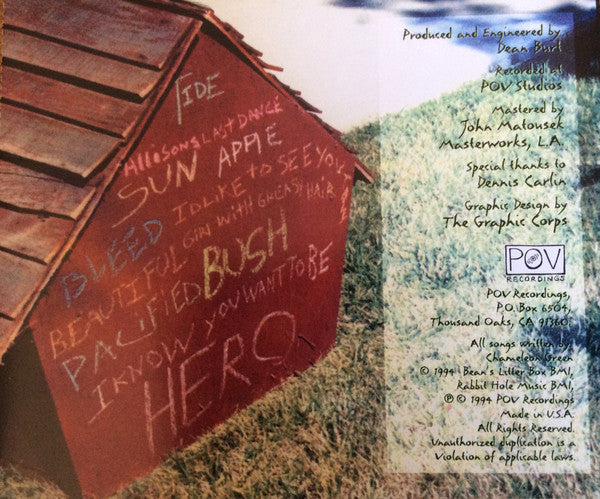 TIDE
Allisons LAST DANCE
SUN APPLE
BLEED I'D LIKE TO SEE YOU
BEAUTIFUL GIRL WITH GREASY HAIR
PACIFIED BUSH
I KNOW YOU WANT TO BE
HERO
Produced and Engineered by
Dean Burt
Recorded at
POV Studios
Mastered by
John Matousek
Masterworks, L.A.
Special thanks to
Dennis Carlin
Graphic Design by
The Graphic Corps
POV
RECORDINGS
POV Recordings,
P.O. Box 6504,
Thousand Oaks, CA 91360.
All songs written by
Chameleon Green
© 1994 Bean's Litter Box BMI,
Rabbit Hole Music BMI,
℗ © 1994 POV Recordings
Made in U.S.A.
All Rights Reserved.
Unauthorized duplication is a
Violation of applicable laws.